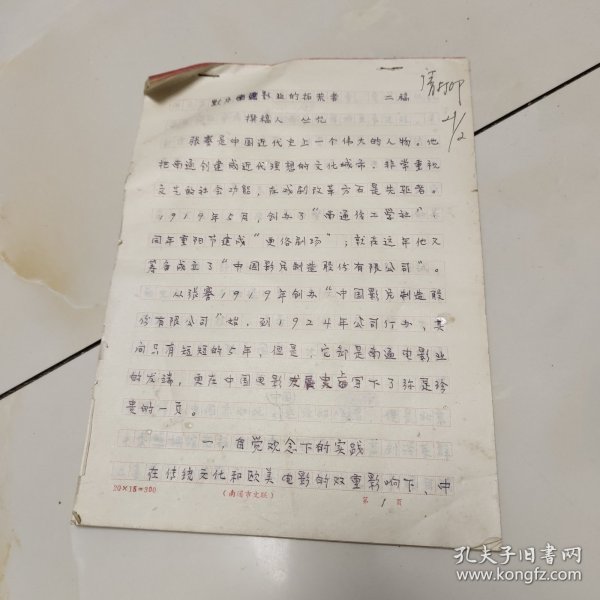 影业的拓荒者 二稿
撰稿人
清
4/2
张謇是中国近代史上一个伟大的人物。他
把南通创建成近代理想的文化城市，非常重视
文艺的社会功能，在戏剧改革方面是先驱者。
1919年5月，创办了“南通伶工学社”，
同年重阳节建成“更俗剧场”；就在这年他又
筹备成立了“中国影片制造股份有限公司”。
从张謇1919年创办“中国影片制造股
份有限公司”始，到1924年公司停办，其
间只有短短的5年，但是，它却是南通电影业
的发端，更在中国电影发展史上写下了弥足珍
贵的一页。
一，自觉观念下的实践
在传统文化和欧美电影的双重影响下，中
20×15=300 （南通市文联） 第 1 页
孔夫子旧书网
www.kongfz.com